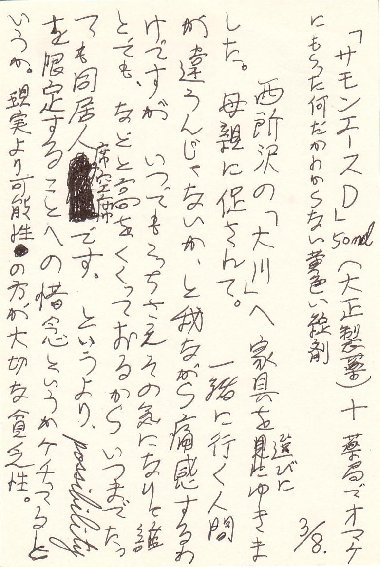 「サモンエースD」50ml（大正製薬）＋薬局でオマケ
にもらった何だかわからない黄色い錠剤
3/8.
西所沢の「大川」へ家具を選びにゆきま
した。母親に促されて。一緒に行く人間
が違うんじゃないか、と我ながら痛感するわ
けですが いつでもこっちさえその気になりゃ誰
とても、などと高をくくっておるから いつまでたっ
ても同居人席空席です。というより、possibility
を限定することへの惜念というかケチってると
いうか。現実より可能性の方が大切な貧乏性。